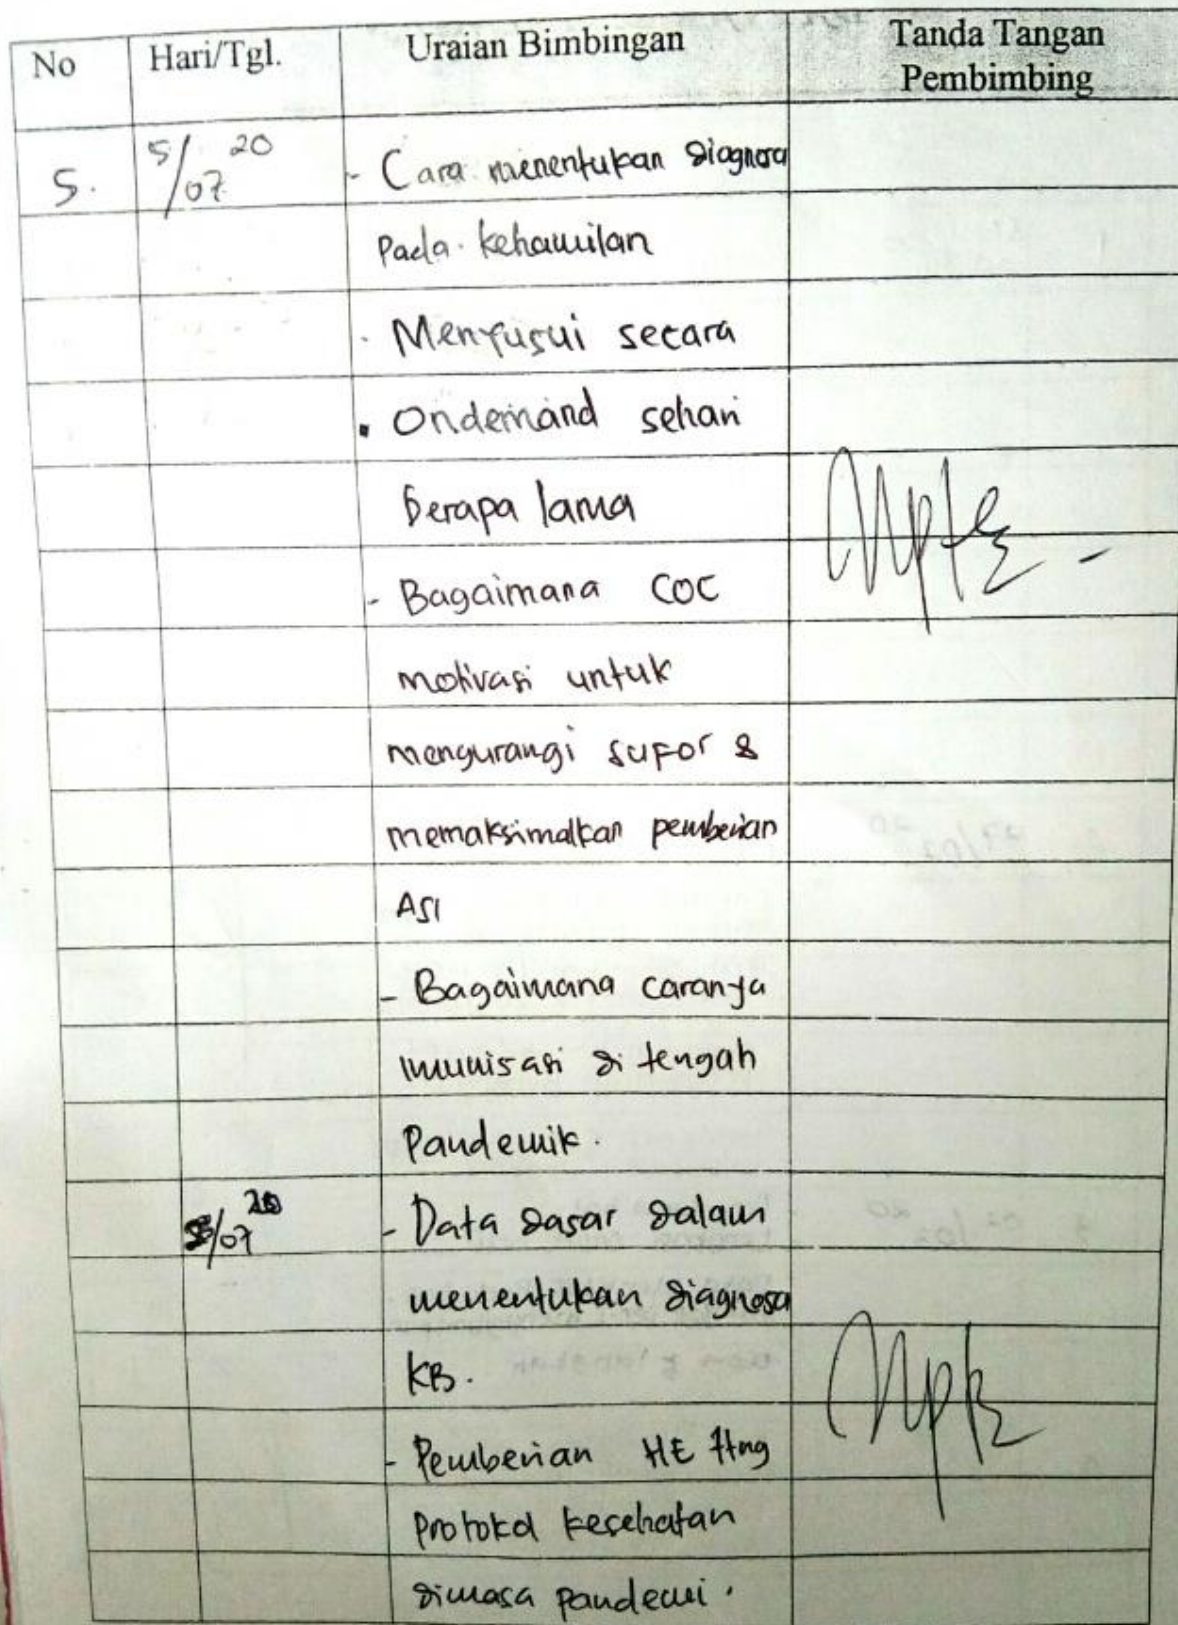 No Hari/Tgl. Uraian Bimbingan Tanda Tangan Pembimbing
5. 5/07 20 - Cara menentukan diagnosa
Pada kehamilan
- Menyusui secara
• Ondemand sehari
berapa lama
- Bagaimana COC
motivasi untuk
mengurangi sufor &
memaksimalkan pemberian
ASI
- Bagaimana caranya
imunisasi di tengah
Pandemik.
/07 20 - Data dasar dalam
menentukan diagnosa
KB.
- Pemberian HE ttng
protokol kesehatan
dimasa pandemi.